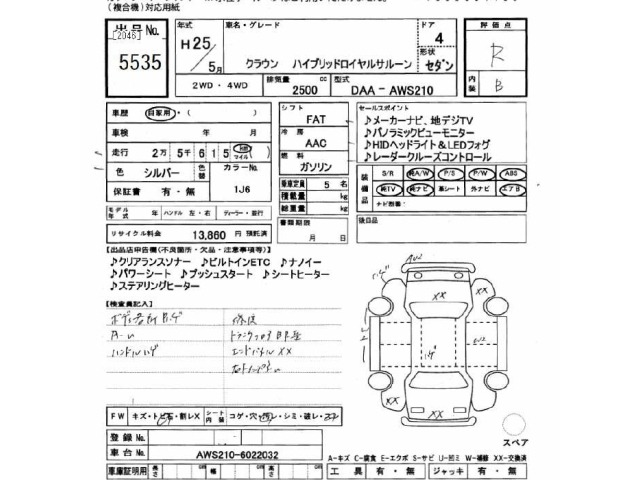 (複合機)対応用紙
出品 No.
[2046]
5535
年式
H25/5月
車名・グレード
クラウン ハイブリッドロイヤルサルーン
ドア
4
形状
セダン
評価点
R
内装
B
2WD ・ 4WD
排気量
2500 cc
型式
DAA - AWS210
車歴 自家用・( )
車検 年 月
走行 2万 5千 6 1 5 km マイル
色 シルバー
色替
カラーNo.
1J6
保証書 有・無
シフト
FAT
冷房
AAC
燃料
ガソリン
乗車定員 5 名
積載量 kg
総重量 kg
セールスポイント
♪メーカーナビ、地デジTV
♪パノラミックビューモニター
♪HIDヘッドライト&LEDフォグ
♪レーダークルーズコントロール
装備品
S/R 純A/W P/S P/W ABS
純TV 純ナビ 革シート 外ナビ エアB
ナビ型番
モデル年式 年 ハンドル 左・右 ディーラー・並行
リサイクル料金 13,860 円 預託済
書類期限
月 日
後日品
【出品店申告欄(不良箇所・欠品・注意事項等)】
♪クリアランスソナー ♪ビルトインETC ♪ナノイー
♪パワーシート ♪プッシュスタート ♪シートヒーター
♪ステアリングヒーター
【検査員記入】
A-U
ハンドル
修復
エンドパネル XX
XX
XX
XX
XX
FW キズ・トビ石・割レX
シート内装
コゲ・穴・シミ・破レ・スレ
登録 No.
車台 No.
AWS210-6022032
スペア
A-キズ C-腐食 E-エクボ S-サビ U-凹ミ W-補修 XX-交換済
車庫証明用 長さ cm 幅 cm 高さ cm
工具 有・無 ジャッキ 有・無